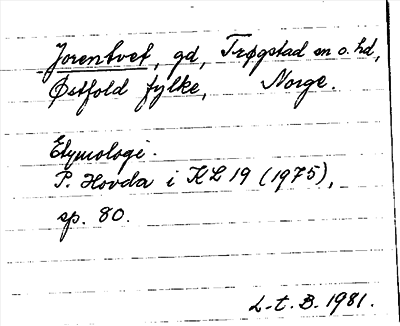 Jorentvet, gd, Trøgstad sn o. hd,
Østfold fylke, Norge.
Etymologi.
P. Hovda i KL 19 (1975),
sp. 80.
L-t. B. 1981.